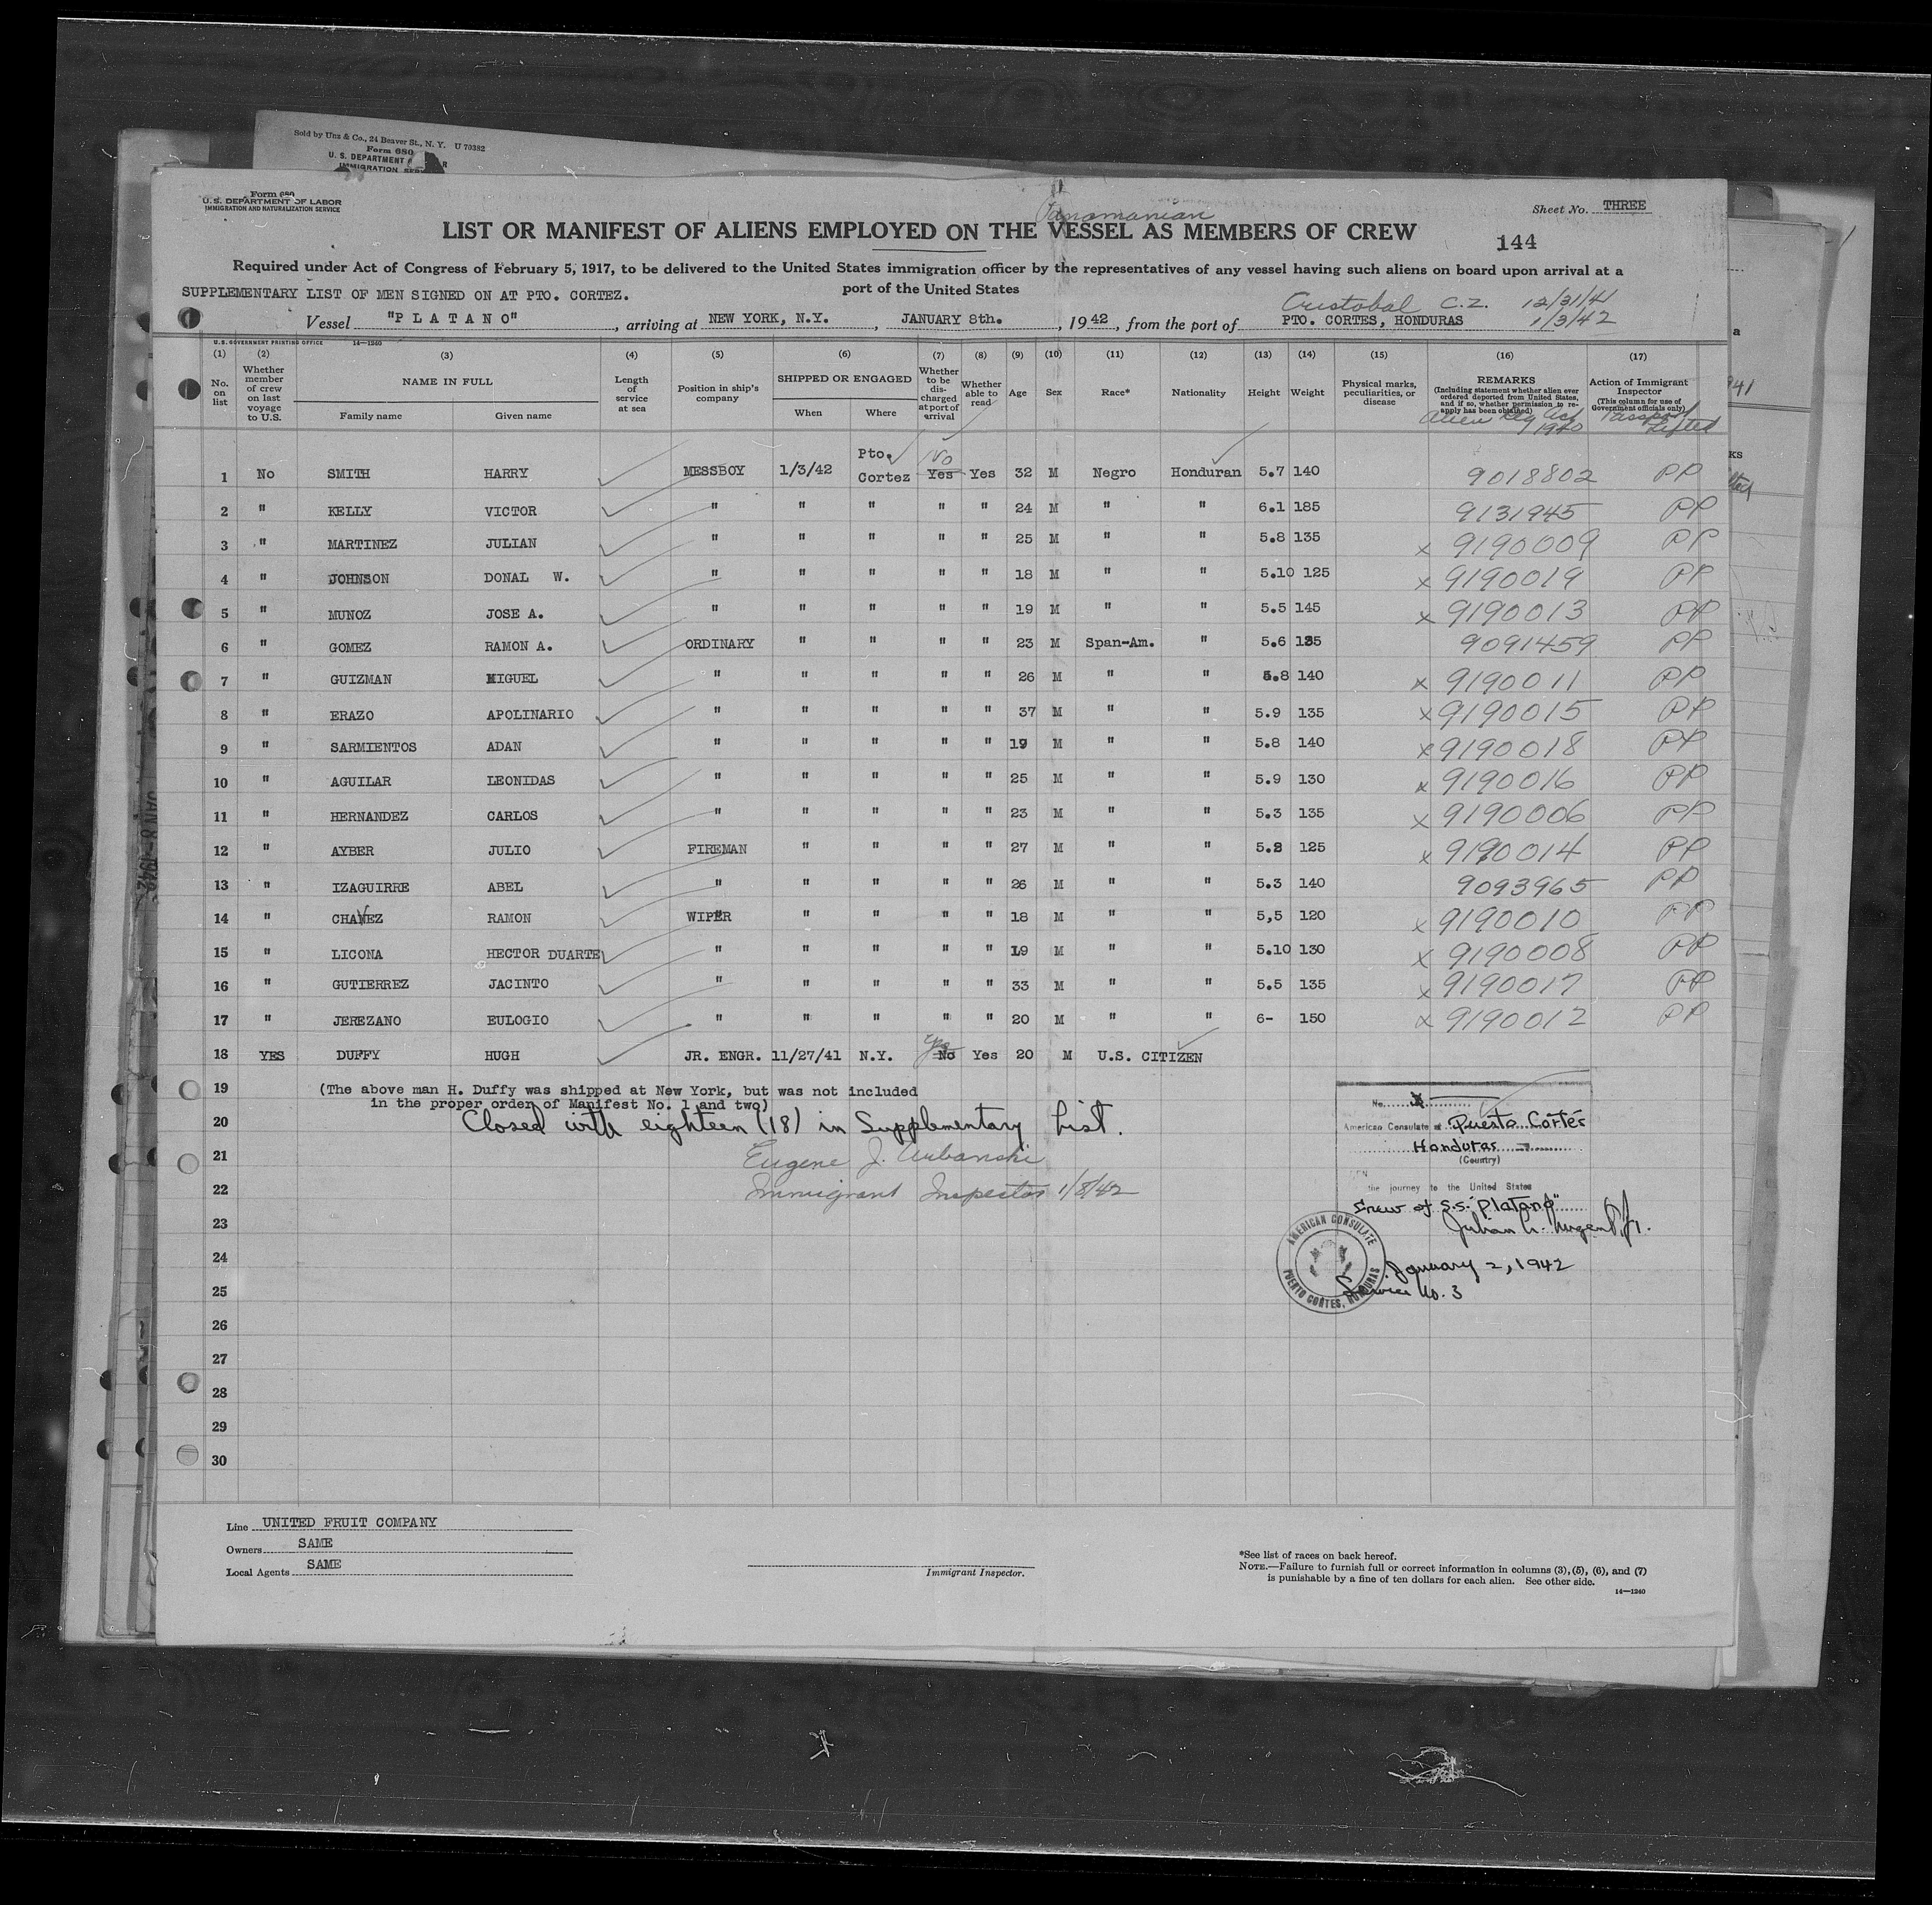 Sold by Unz & Co., 24 Beaver St., N. Y. U 70382
Form 680
U. S. DEPARTMENT
IMMIGRATION
Form 680
U. S. DEPARTMENT OF LABOR
IMMIGRATION AND NATURALIZATION SERVICE
Sheet No. THREE
Panamanian
LIST OR MANIFEST OF ALIENS EMPLOYED ON THE VESSEL AS MEMBERS OF CREW
144
Required under Act of Congress of February 5, 1917, to be delivered to the United States immigration officer by the representatives of any vessel having such aliens on board upon arrival at a
port of the United States
SUPPLEMENTARY LIST OF MEN SIGNED ON AT PTO. CORTEZ.
Cristobal C.Z. 12/31/41
Vessel "P L A T A N O", arriving at NEW YORK, N.Y., JANUARY 8th., 1942, from the port of PTO. CORTES, HONDURAS 1/3/42
U.S. GOVERNMENT PRINTING OFFICE 14-1240
(1) (2) (3) (4) (5) (6) (7) (8) (9) (10) (11) (12) (13) (14) (15) (16) (17)
No. on list
Whether member of crew on last voyage to U.S.
NAME IN FULL
Family name Given name
Length of service at sea
Position in ship's company
SHIPPED OR ENGAGED
When Where
Whether to be discharged at port of arrival
Whether able to read
Age
Sex
Race*
Nationality
Height
Weight
Physical marks, peculiarities, or disease
REMARKS
(Including statement whether alien ever ordered deported from United States, and if so, whether permission to reapply has been obtained)
Alien Reg Act 1940
Action of Immigrant Inspector
(This column for use of Government officials only)
Passport Lifted
1 No SMITH HARRY MESSBOY 1/3/42 Pto. Cortez No Yes Yes 32 M Negro Honduran 5.7 140 9018802 PP
2 " KELLY VICTOR " " " " " 24 M " " 6.1 185 9131945 PP
3 " MARTINEZ JULIAN " " " " " 25 M " " 5.8 135 x 9190009 PP
4 " JOHNSON DONAL W. " " " " " 18 M " " 5.10 125 x 9190019 PP
5 " MUNOZ JOSE A. " " " " " 19 M " " 5.5 145 x 9190013 PP
6 " GOMEZ RAMON A. ORDINARY " " " " 23 M Span-Am. " 5.6 135 9091459 PP
7 " GUIZMAN MIGUEL " " " " " 26 M " " 5.8 140 x 9190011 PP
8 " ERAZO APOLINARIO " " " " " 37 M " " 5.9 135 x 9190015 PP
9 " SARMIENTOS ADAN " " " " " 19 M " " 5.8 140 x 9190018 PP
10 " AGUILAR LEONIDAS " " " " " 25 M " " 5.9 130 x 9190016 PP
11 " HERNANDEZ CARLOS " " " " " 23 M " " 5.3 135 x 9190006 PP
12 " AYBER JULIO FIREMAN " " " " 27 M " " 5.2 125 x 9190014 PP
13 " IZAGUIRRE ABEL " " " " " 26 M " " 5.3 140 9093965 PP
14 " CHAVEZ RAMON WIPER " " " " 18 M " " 5,5 120 x 9190010 PP
15 " LICONA HECTOR DUARTE " " " " " 19 M " " 5.10 130 x 9190008 PP
16 " GUTIERREZ JACINTO " " " " " 33 M " " 5.5 135 x 9190017 PP
17 " JEREZANO EULOGIO " " " " " 20 M " " 6- 150 x 9190012 PP
18 YES DUFFY HUGH JR. ENGR. 11/27/41 N.Y. yes No Yes 20 M U.S. CITIZEN
19 (The above man H. Duffy was shipped at New York, but was not included
in the proper order of Manifest No. 1 and two)
20 Closed with eighteen (18) in Supplementary List.
21 Eugene J. Urbanski
22 Immigrant Inspector 1/8/42
23
24
25
26
27
28
29
30
No.
American Consulate at Puerto Cortés
Honduras
(Country)
the journey to the United States
Crew of S.S. "Platano"
January 2, 1942
Service No. 3
AMERICAN CONSULATE
PUERTO CORTES, HONDURAS
JAN 8 - 1942
Line UNITED FRUIT COMPANY
Owners SAME
Local Agents SAME
Immigrant Inspector.
*See list of races on back hereof.
NOTE.—Failure to furnish full or correct information in columns (3), (5), (6), and (7)
is punishable by a fine of ten dollars for each alien. See other side.
14-1240